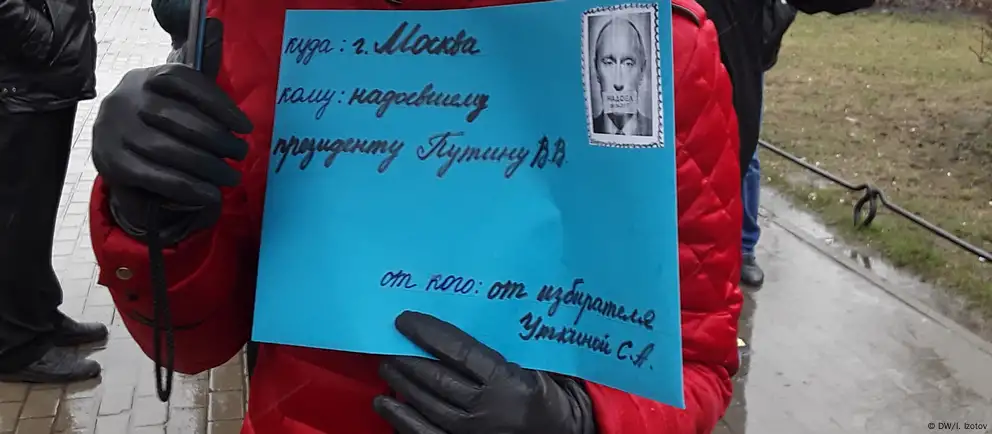 куда: г. Москва
кому: надоевшему
президенту Путину В.В.
НАДОЕЛ
от кого: от избирателя
Уткиной С.А.
© DW/I. Izotov